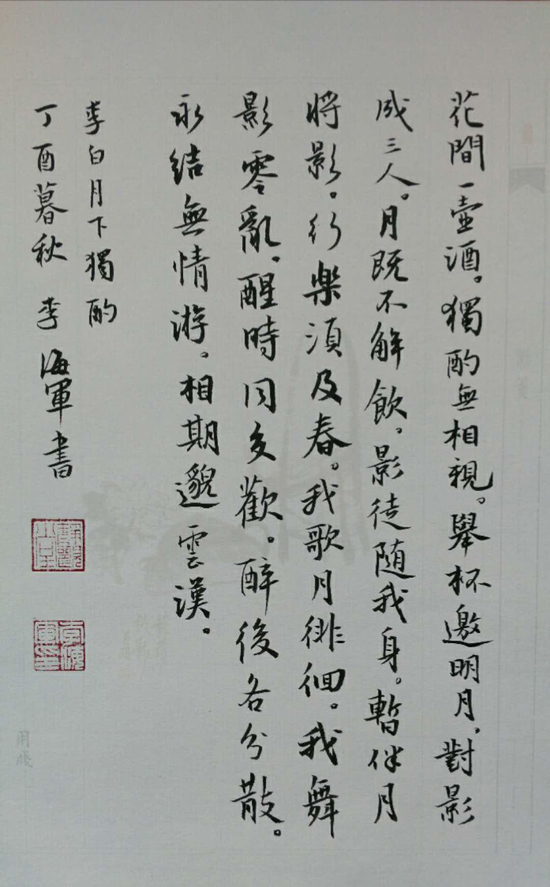 花間一壺酒。獨酌無相親。舉杯邀明月、對影
成三人。月既不解飲。影徒隨我身。暫伴月
將影。行樂須及春。我歌月徘徊。我舞
影零亂。醒時同交歡。醉後各分散。
永結無情游。相期邈雲漢。
李白月下獨酌
丁酉暮秋 李海軍書